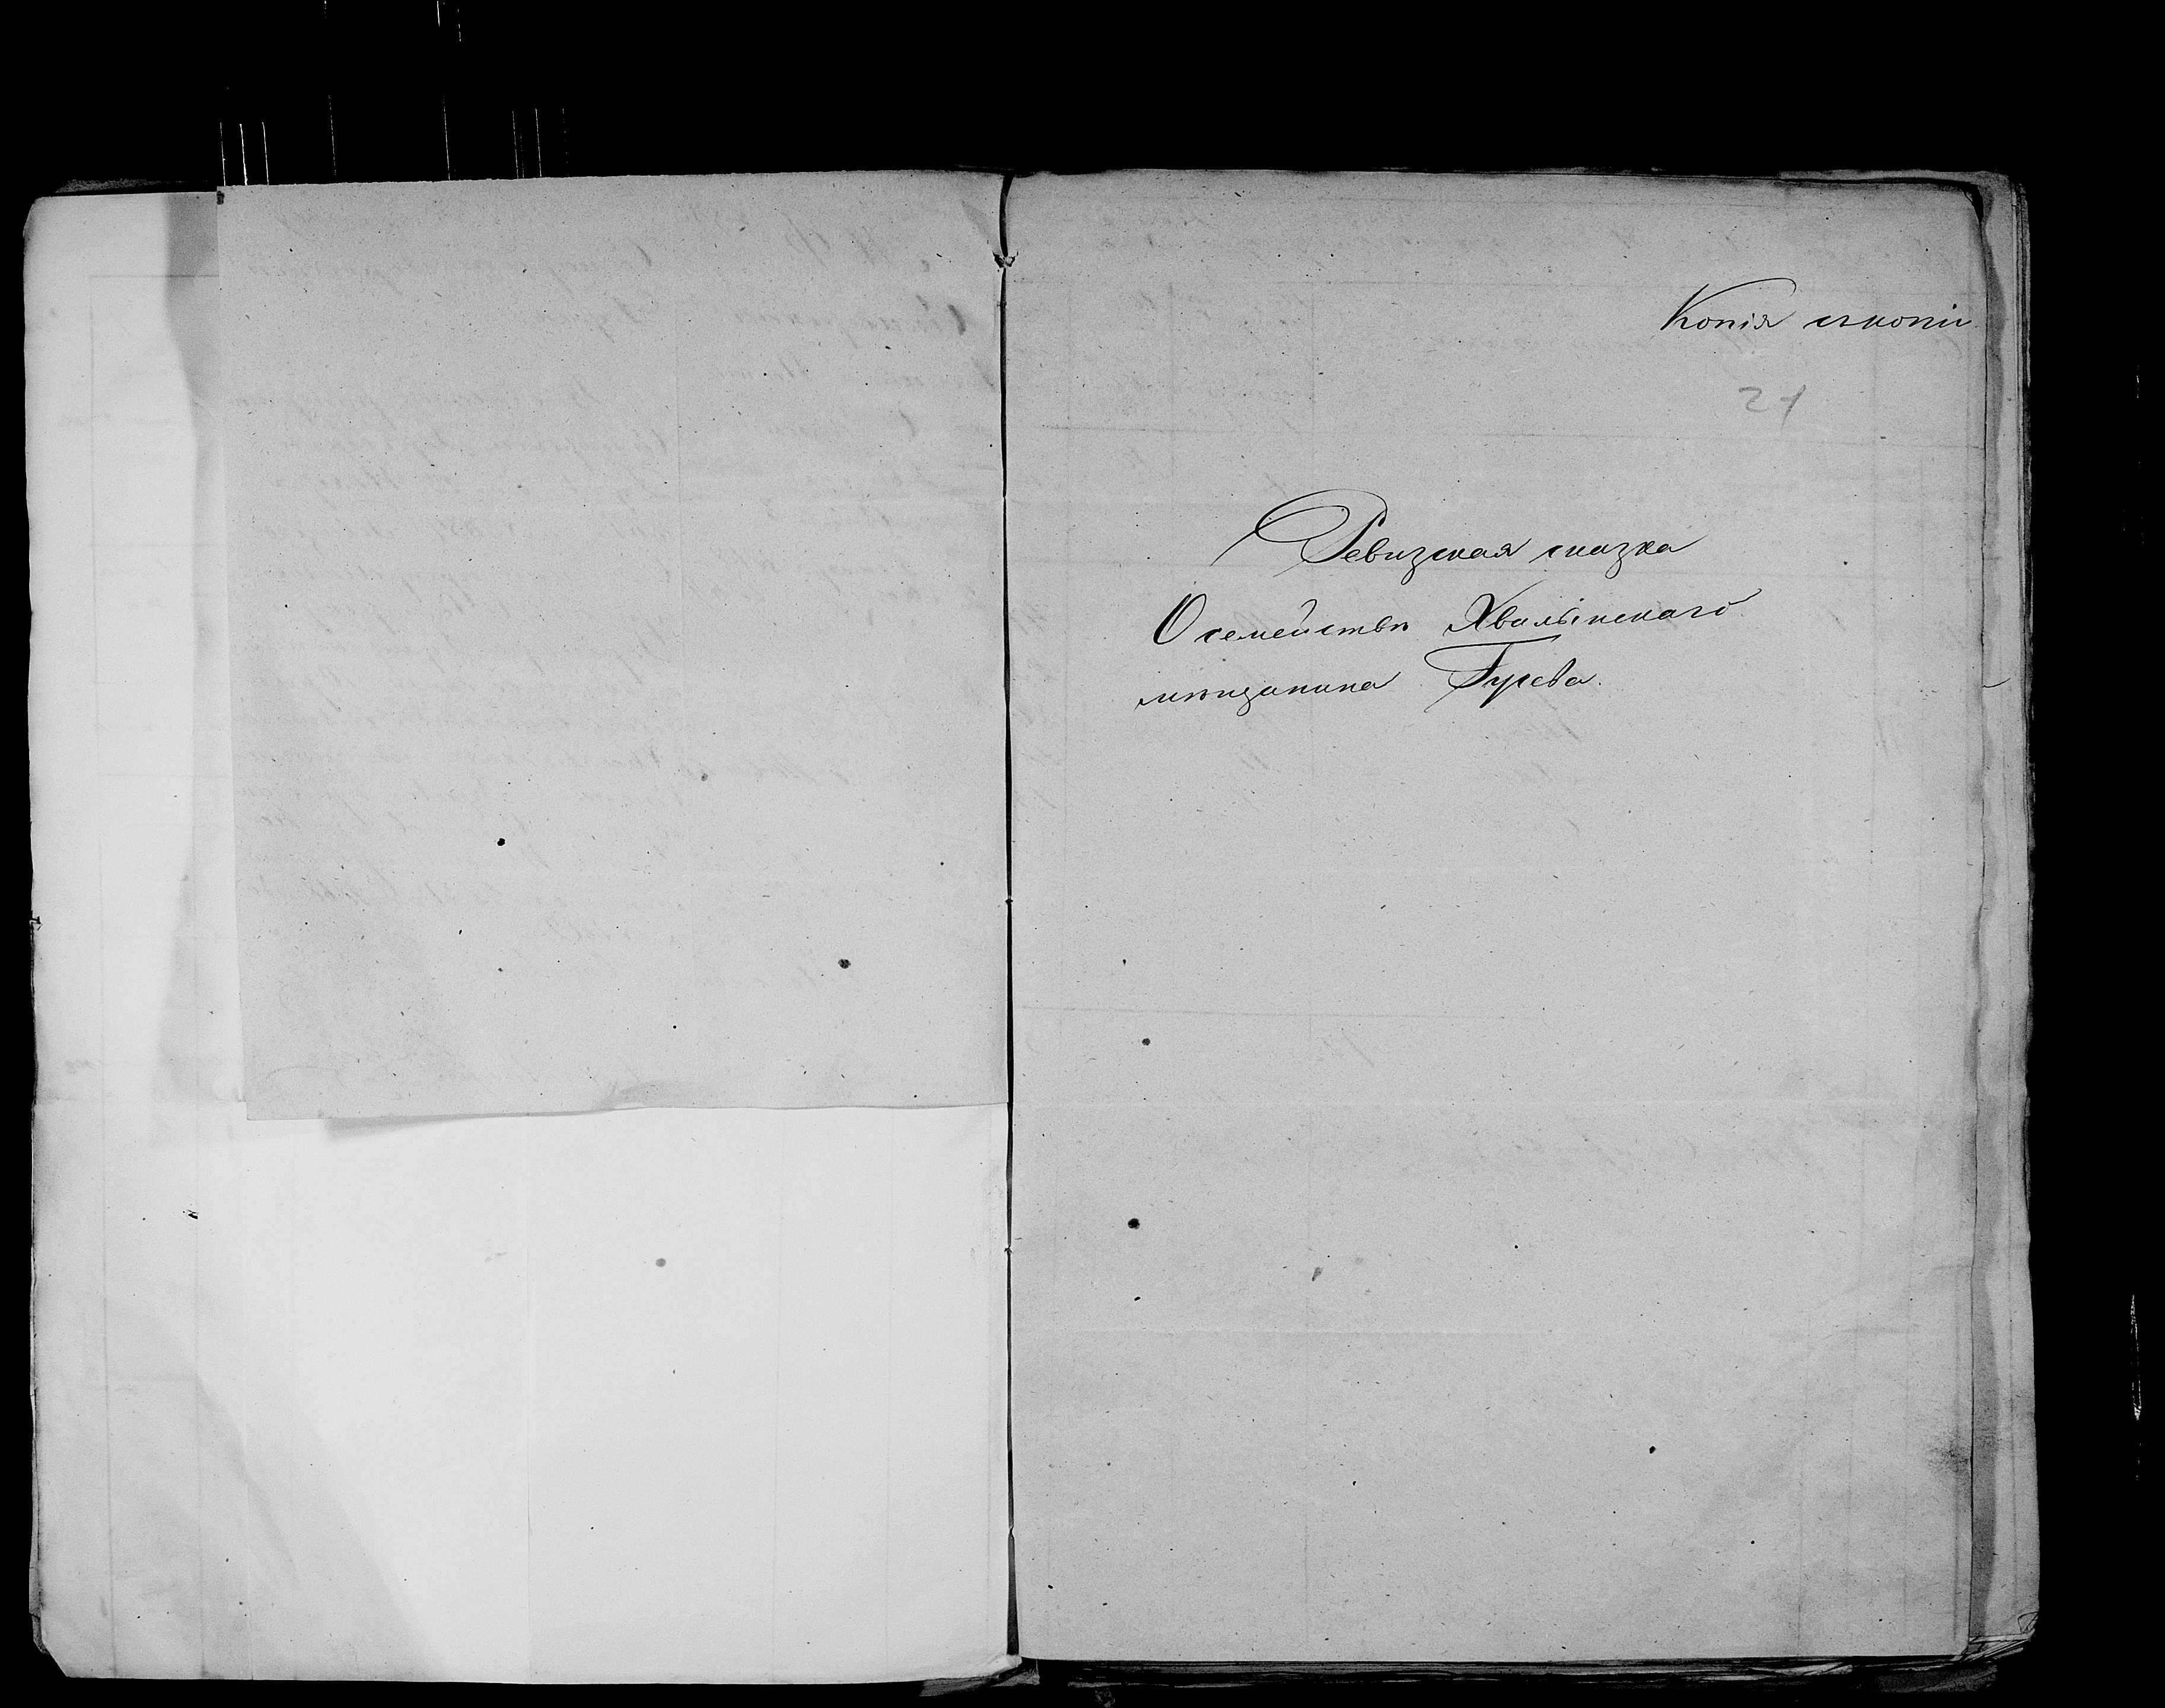 Копія съ копіи
21
Ревизская сказка
О семействѣ Хвалынскаго
мѣщанина Гусева.